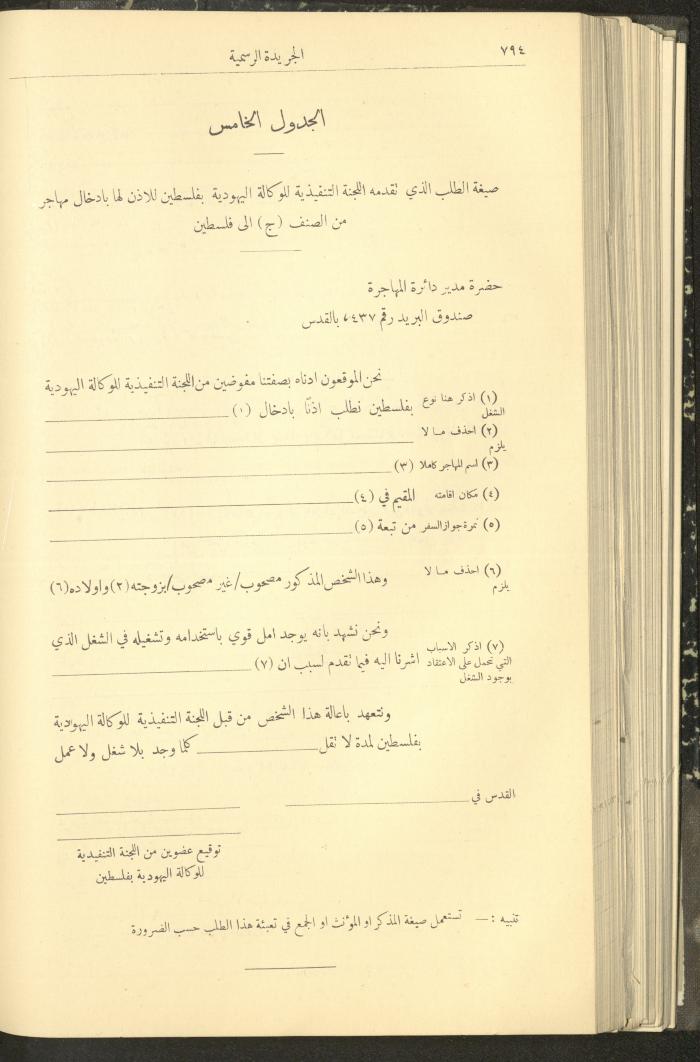 ٧٩٤
الجريدة الرسمية
الجدول الخامس
صيغة الطلب الذي تقدمه اللجنة التنفيذية للوكالة اليهودية بفلسطين للاذن لها بادخال مهاجر
من الصنف (ج) الى فلسطين
حضرة مدير دائرة المهاجرة
صندوق البريد رقم ٤٣٧، بالقدس
نحن الموقعون ادناه بصفتنا مفوضين من اللجنة التنفيذية للوكالة اليهودية
(١) اذكر هنا نوع الشغل
بفلسطين نطلب اذنًا بادخال (١)
(٢) احذف مـا لا يلزم
(٣) اسم المهاجر كاملا (٣)
(٤) مكان اقامته المقيم في (٤)
(٥) نمرة جواز السفر من تبعة (٥)
(٦) احذف مـا لا يلزم
وهذا الشخص المذكور مصحوب/غير مصحوب/بزوجته (٢) واولاده (٦)
ونحن نشهد بانه يوجد امل قوي باستخدامه وتشغيله في الشغل الذي
(٧) اذكر الاسباب
التي تحمل على الاعتقاد
بوجود الشغل
اشرنا اليه فيما تقدم لسبب ان (٧)
ونتعهد باعالة هذا الشخص من قبل اللجنة التنفيذية للوكالة اليهودية
بفلسطين لمدة لا تقل كلما وجد بلا شغل ولا عمل
القدس في
توقيع عضوين من اللجنة التنفيدية
للوكالة اليهودية بفلسطين
تنبيه :— تستعمل صيغة المذكر او المؤنث او الجمع في تعبئة هذا الطلب حسب الضرورة